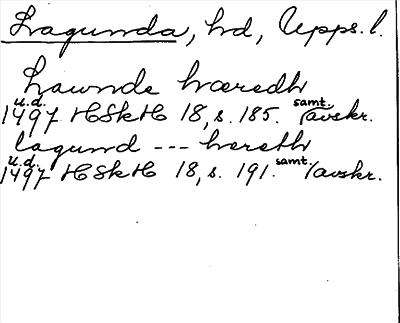 Lagunda, hd, Upps. l.
Lawnde hæredh
u.d. 1497 HSkH 18, s. 185. samt. avskr.
lagund --- hæreth
u.d. 1497 HSkH 18, s. 191. samt. avskr.